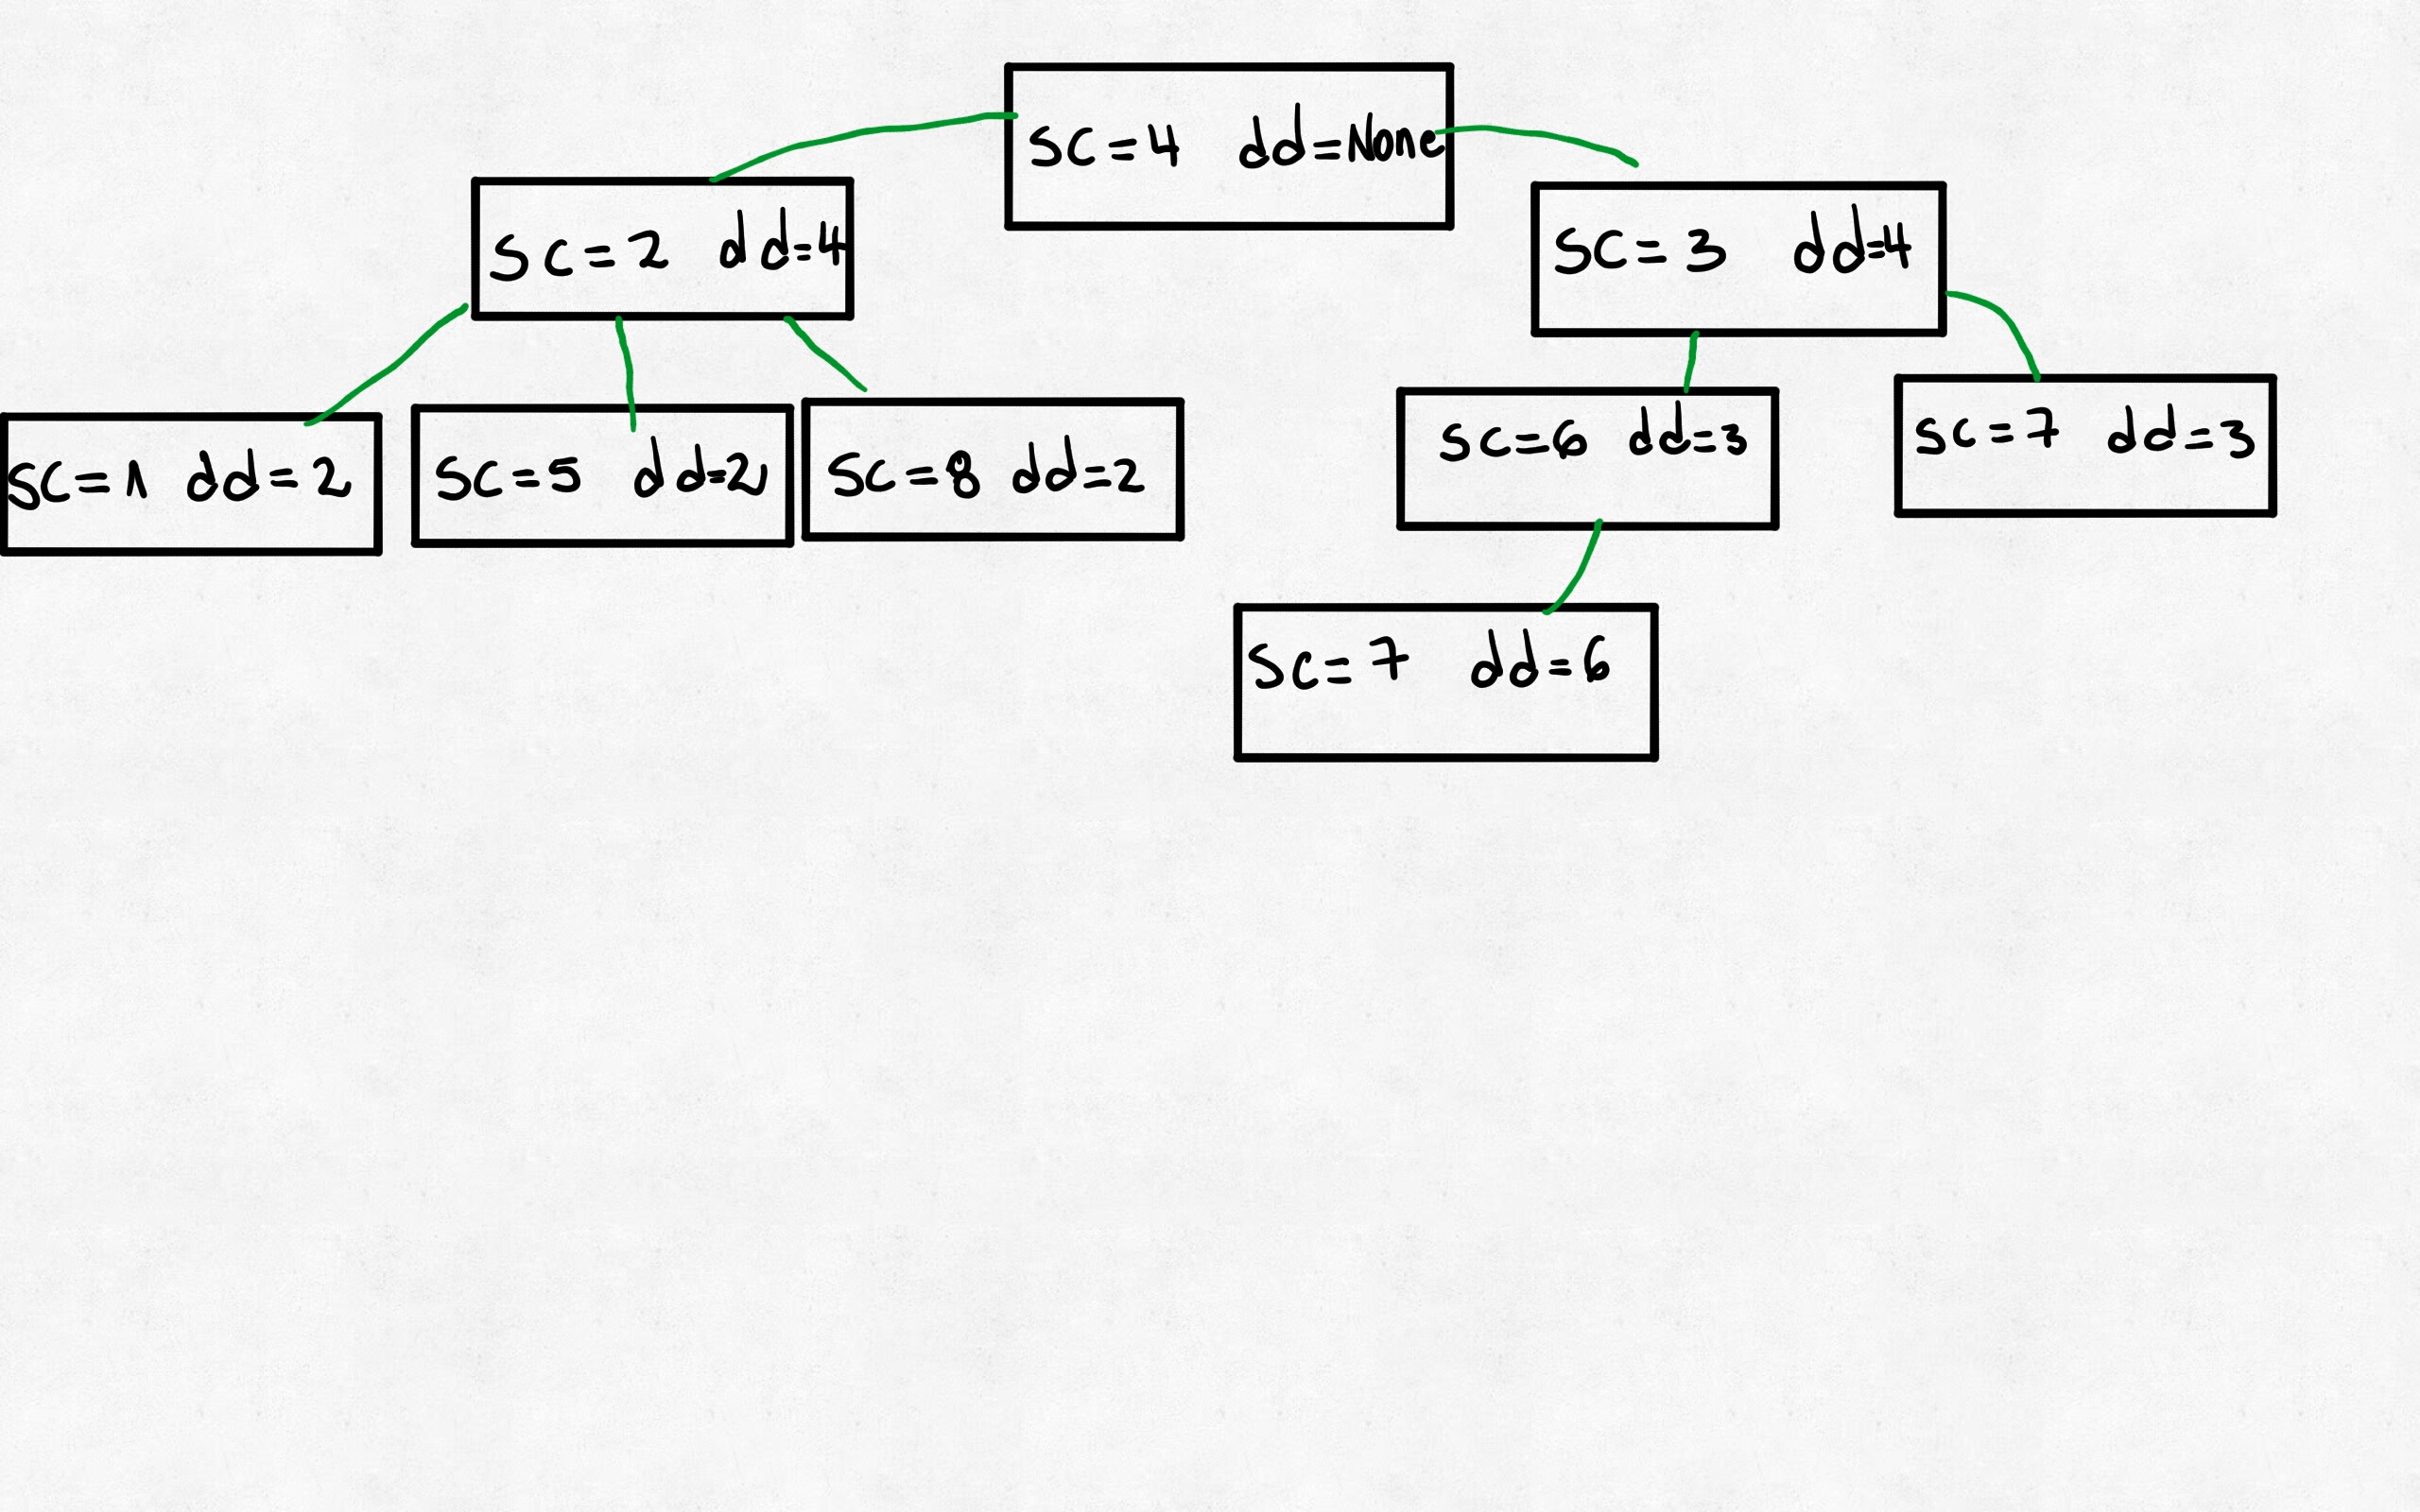 sc=4 dd=None
sc=2 dd=4
sc=3 dd=4
sc=1 dd=2
sc=5 dd=2
sc=8 dd=2
sc=6 dd=3
sc=7 dd=3
sc=7 dd=6